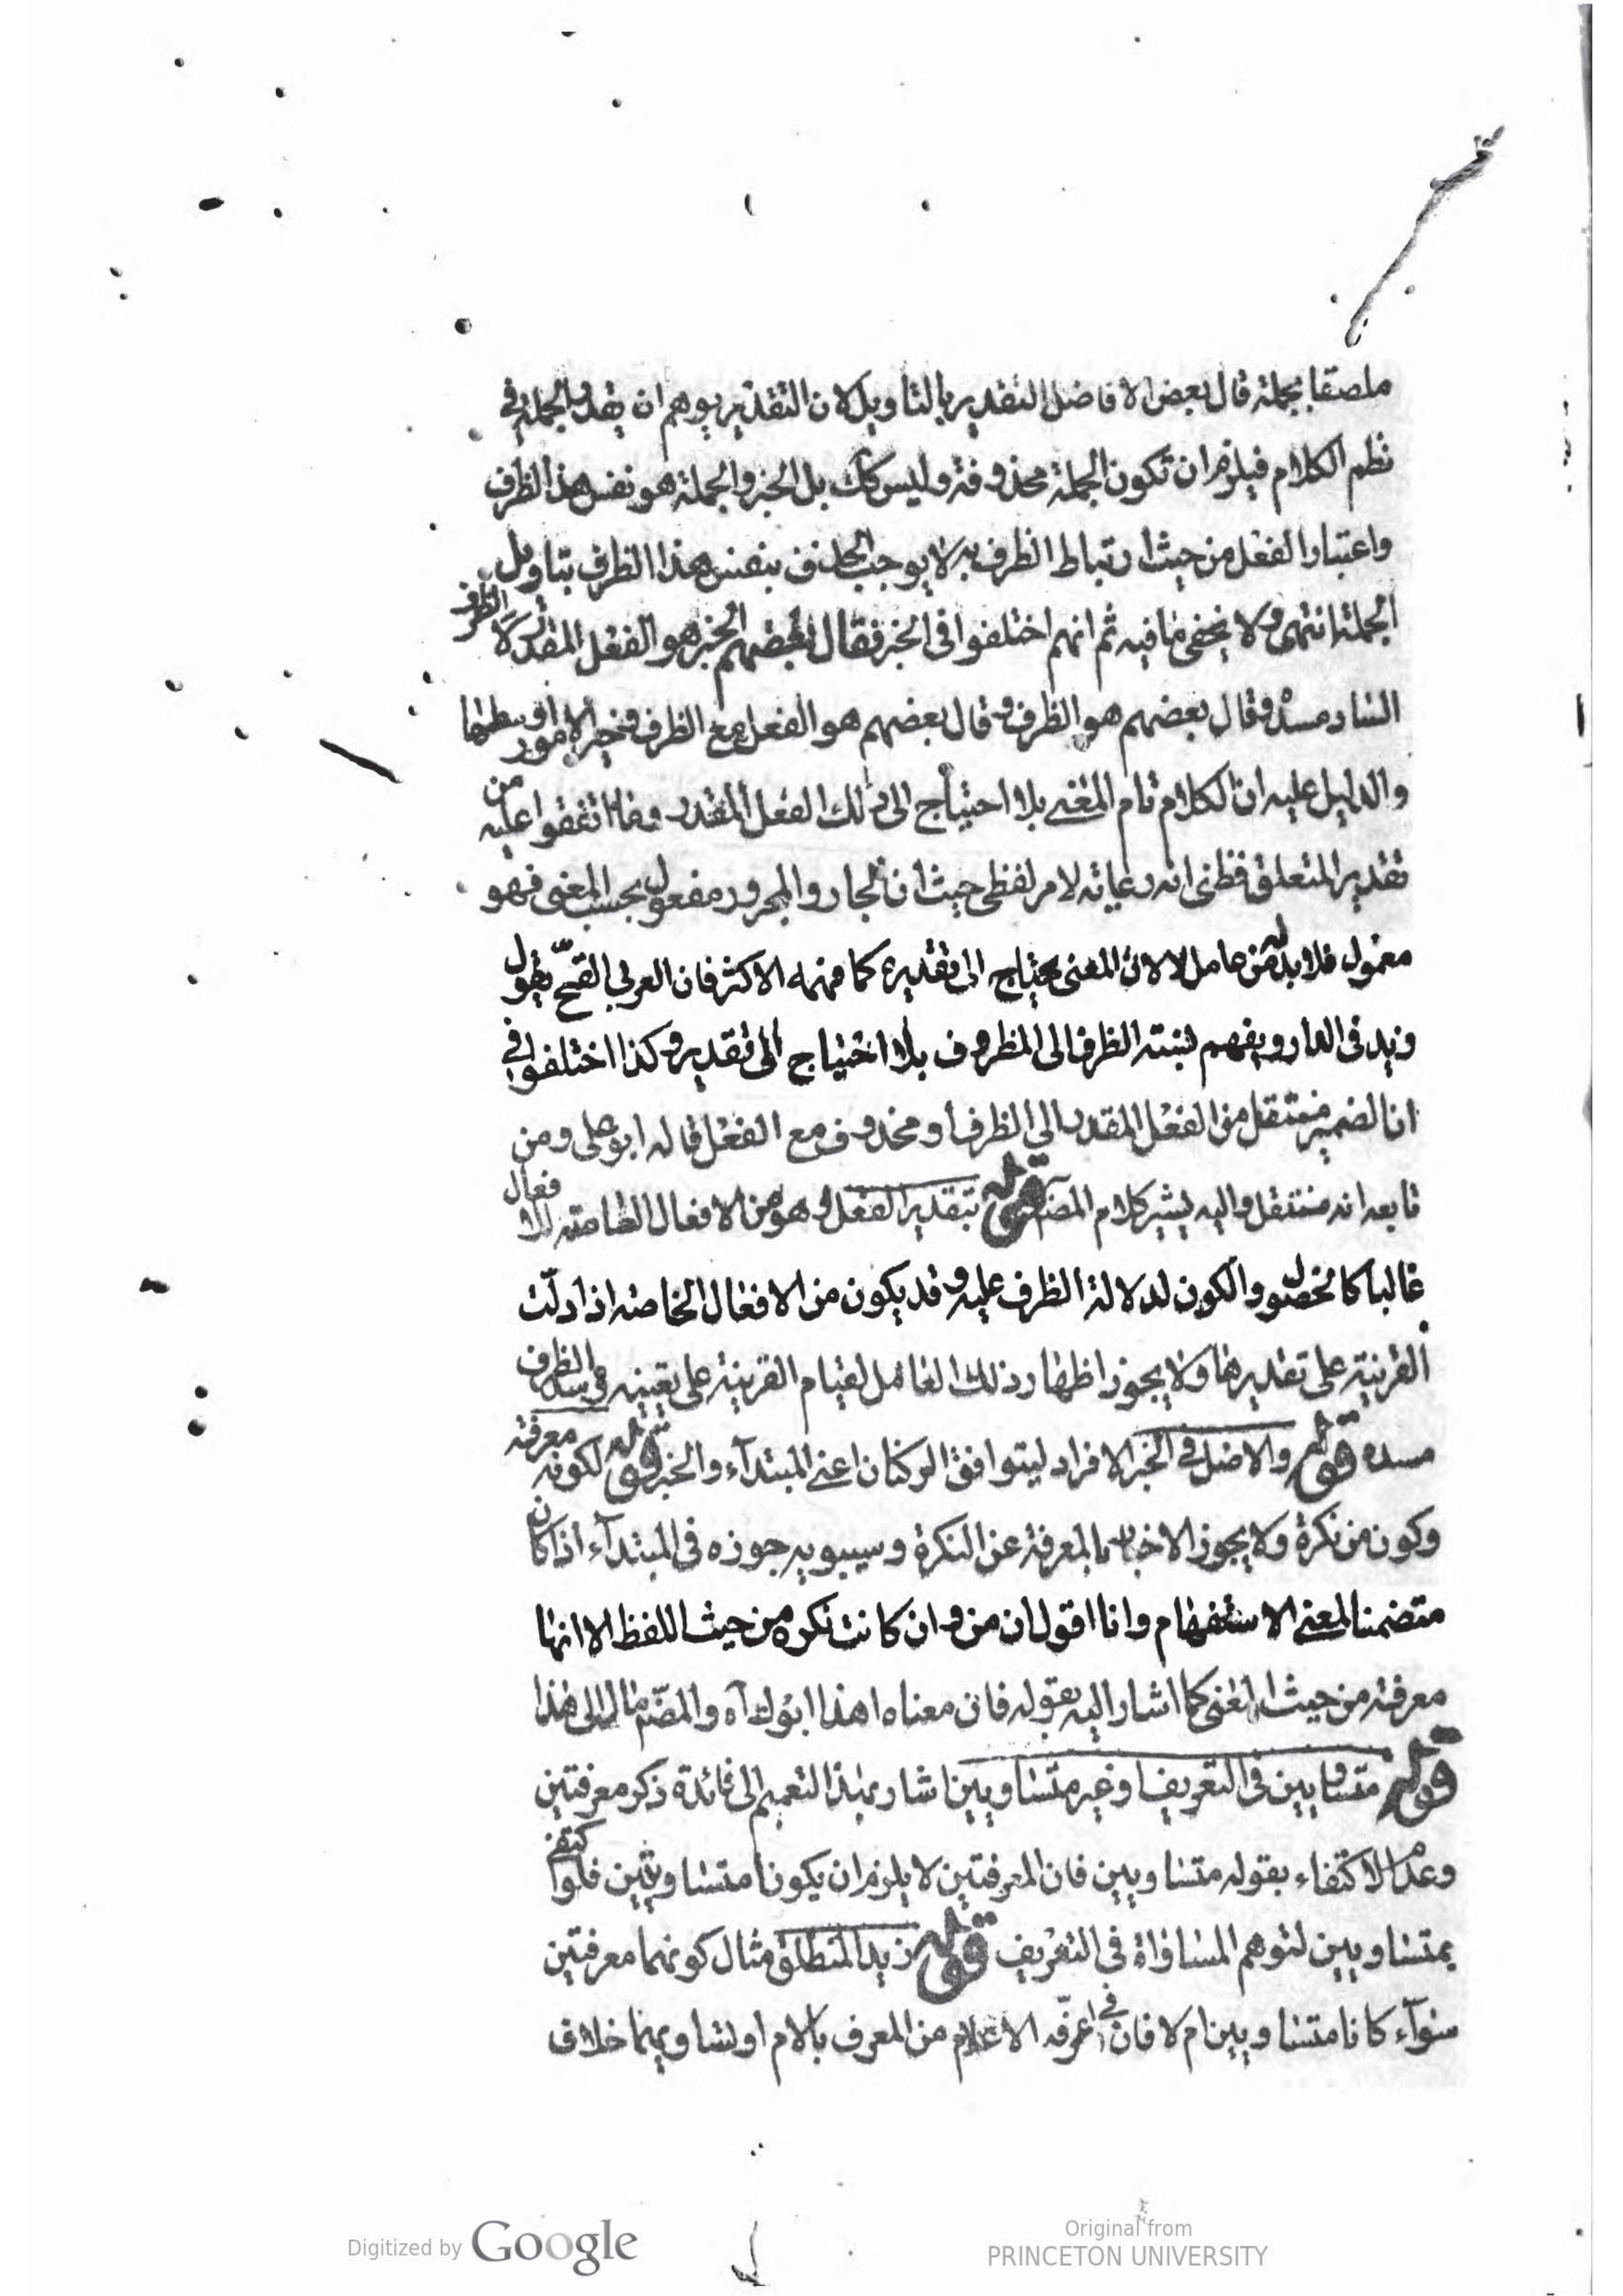 ملصقا بجملة قال بعض الافاضل التقدير بالتاويل لان التقدير يوهم ان يقدر الجملة في
نظم الكلام فيلزم ان تكون الجملة محذوفة وليس كك بل الخبر والجملة هو نفس هذا الظرف
واعتبار الفعل من حيث ارتباط الظرف به لا يوجب الحذف بنفس هذا الظرف بتاويل
الجملة انتهى ولا يخفى ما فيه ثم انهم اختلفوا في الخبر فقال بعضهم الخبر هو الفعل المقدر لا الظرف
الساد مسده وقال بعضهم هو الظرف وقال بعضهم هو الفعل مع الظرف وخير الامور اوسطها
والدليل عليه ان الكلام تام المعنى بلا احتياج الى ذلك الفعل المقدر وما اتفقوا عليه من
تقدير المتعلق فظني انه رعاية لامر لفظي حيث ان الجار والمجرور مفعول بحسب المعنى فهو
معمول فلا بد له من عامل لا لان المعنى يحتاج الى تقديره كما فهمه الاكثر فان العربي القحّ يقول
زيد في الدار ويفهم نسبته الظرف الى المظروف بلا احتياج الى تقدير وكذا اختلفوا في
ان الضمير منتقل من الفعل المقدر الى الظرف او محذوف مع الفعل قاله ابو علي ومن
تابعه انه منتقل واليه يشير كلام المصنف قوله بتقدير الفعل وهو من الافعال العامة الافعال
غالبا كالحصول والكون لدلالة الظرف عليه وقد يكون من الافعال الخاصة اذا دلّت
القرينة على تقديرها ولا يجوز اظهار ذلك العامل لقيام القرينة على تعيينه وسد الظرف
مسده قوله والاصل في الخبر الافراد ليتوافق الركنان اعني المبتدآء والخبر قوله لكونه معرفة
وكون من نكرة ولا يجوز الاخبار بالمعرفة عن النكرة وسيبويه جوزه في المبتدآء اذا كان
متضمنا لمعنى الاستفهام وانا اقول ان من وان كانت نكره من حيث اللفظ الا انها
معرفة من حيث المعنى كما اشار اليه بقوله فان معناه اهذا ابوك آه والمصّ مال الى هذا
قوله متساويين في التعريف او غير متساويين اشار بهذا التعميم الى فائدة ذكر معرفتين
وعدم الاكتفاء بقوله متساويين فان المعرفتين لا يلزم ان يكونا متساويتين فلو اكتفى
بمتساويين لتوهم المساواة في التعريف قوله زيد المنطلق مثال كونهما معرفتين
سوآء كانا متساويين ام لا فان في اعرفّه الاعلام من المعرف باللام او تساويهما خلاف
Digitized by Google
Original from
PRINCETON UNIVERSITY